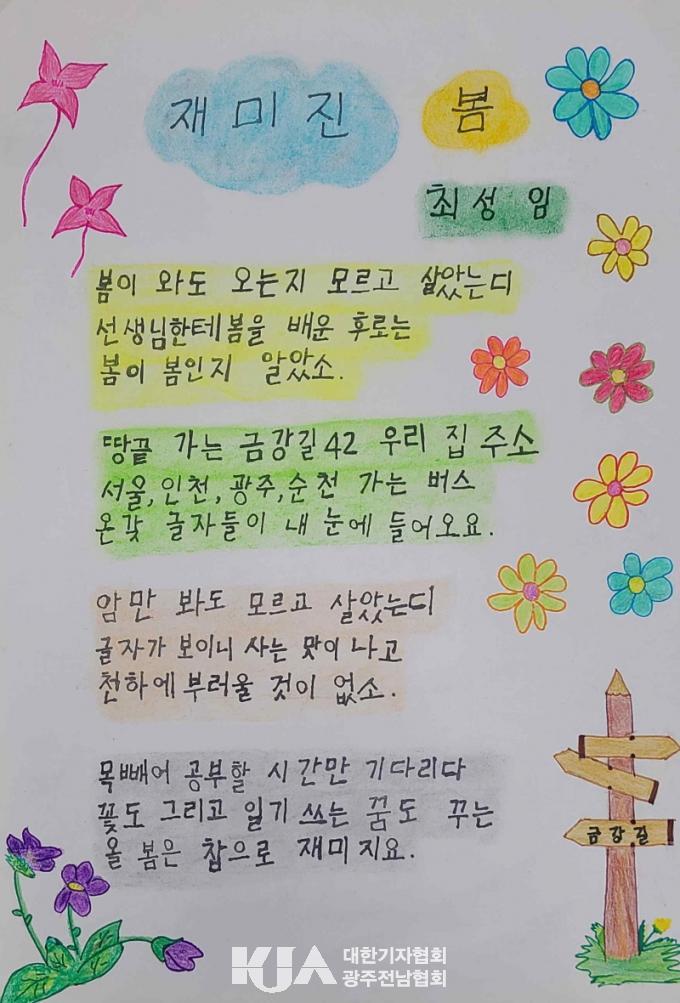 재미진 봄
최성임
봄이 와도 오는지 모르고 살았는디
선생님한테 봄을 배운 후로는
봄이 봄인지 알았소.
땅끝 가는 금강길42 우리 집 주소
서울,인천,광주,순천 가는 버스
온갖 글자들이 내 눈에 들어오요.
암만 봐도 모르고 살았는디
글자가 보이니 사는 맛이 나고
천하에 부러울 것이 없소.
목빼어 공부할 시간만 기다리다
꽃도 그리고 일기 쓰는 꿈도 꾸는
올 봄은 참으로 재미지요.
금강길
KJA 대한기자협회
광주전남협회